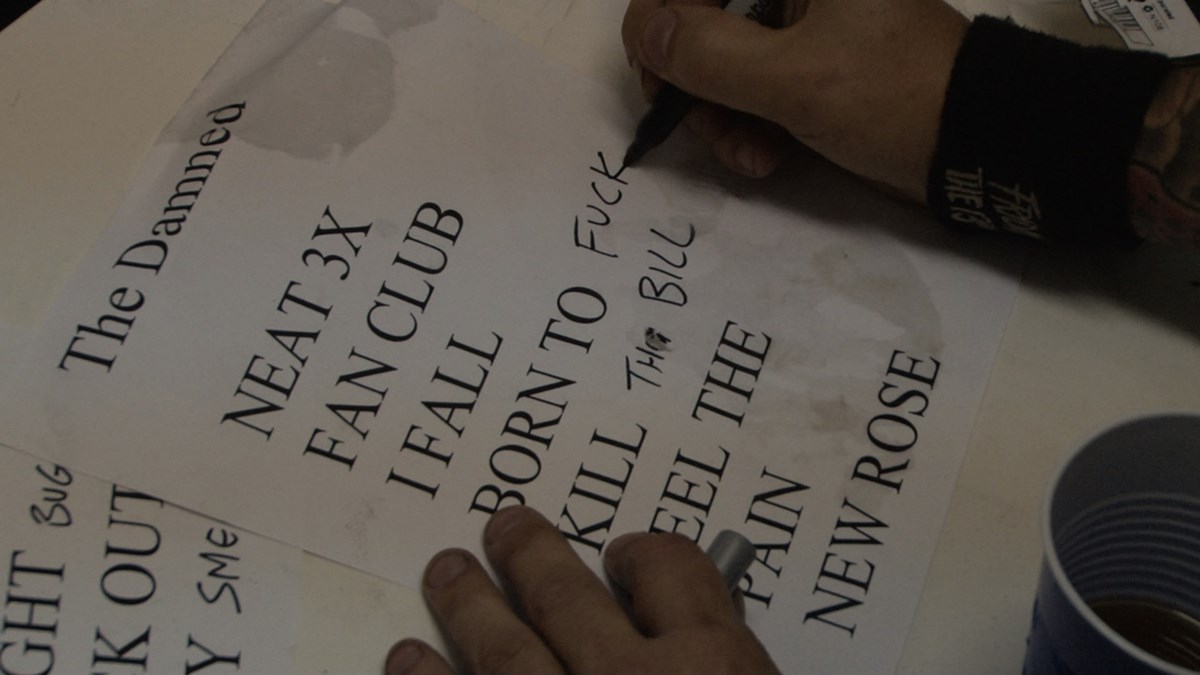 The Damned
NEAT 3X
FAN CLUB
I FALL
BORN TO FUCK
KILL THE BILL
EEL THE
PAIN
NEW ROSE
GHT BUG
CK OUT
Y SME